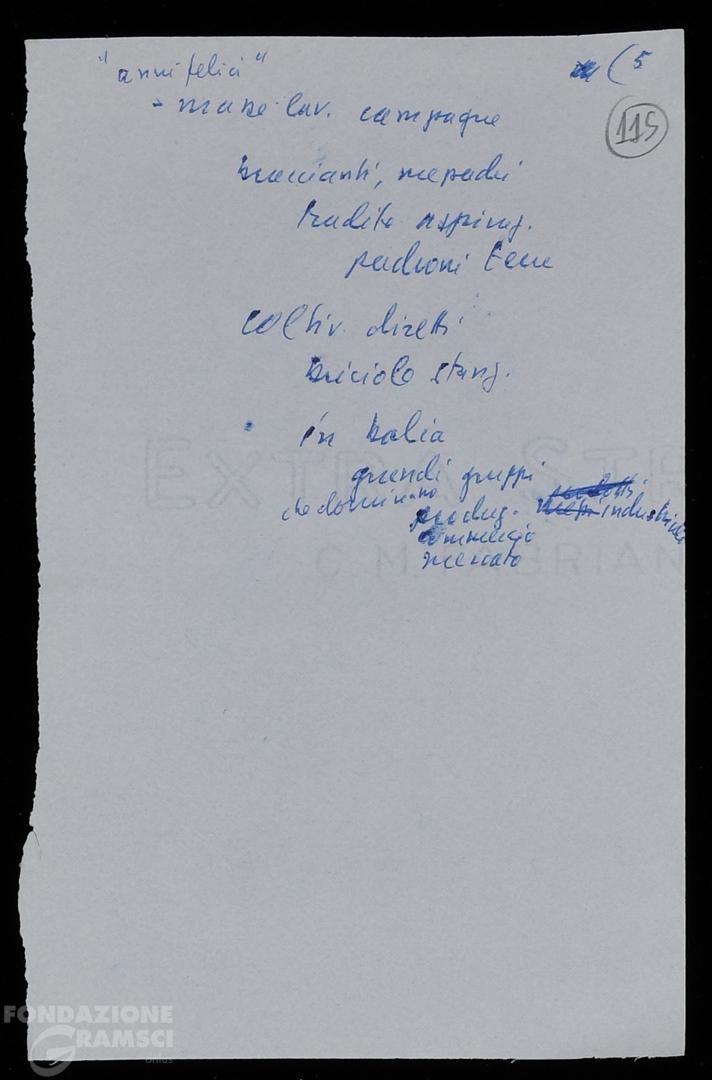 "anni felici" (5
115
- masse lav. campagne
braccianti, mezadri
tradite aspiraz.
padroni terre
coltiv. diretti
briciole stanz.
in Italia
grandi gruppi
che dominano
produz. industriale
commercio
mercato
EXTRA ST
C. M. FABRIAN
FONDAZIONE
GRAMSCI
onlus